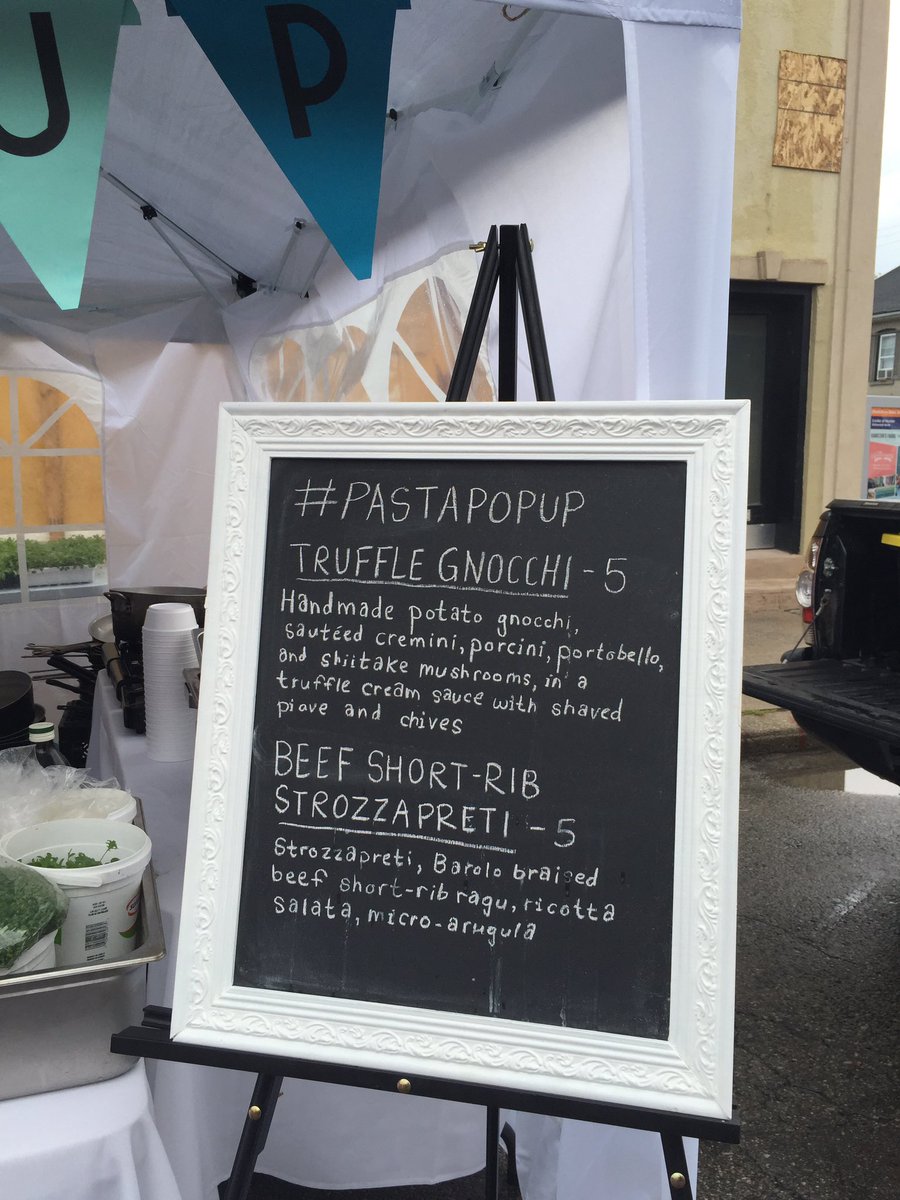 UP
#PASTAPOPUP
TRUFFLE GNOCCHI - 5
Handmade potato gnocchi,
sautéed cremini, porcini, portobello,
and shiitake mushrooms, in a
truffle cream sauce with shaved
piave and chives
BEEF SHORT-RIB
STROZZAPRETI - 5
Strozzapreti, Barolo braised
beef short-rib ragu, ricotta
salata, micro-arugula